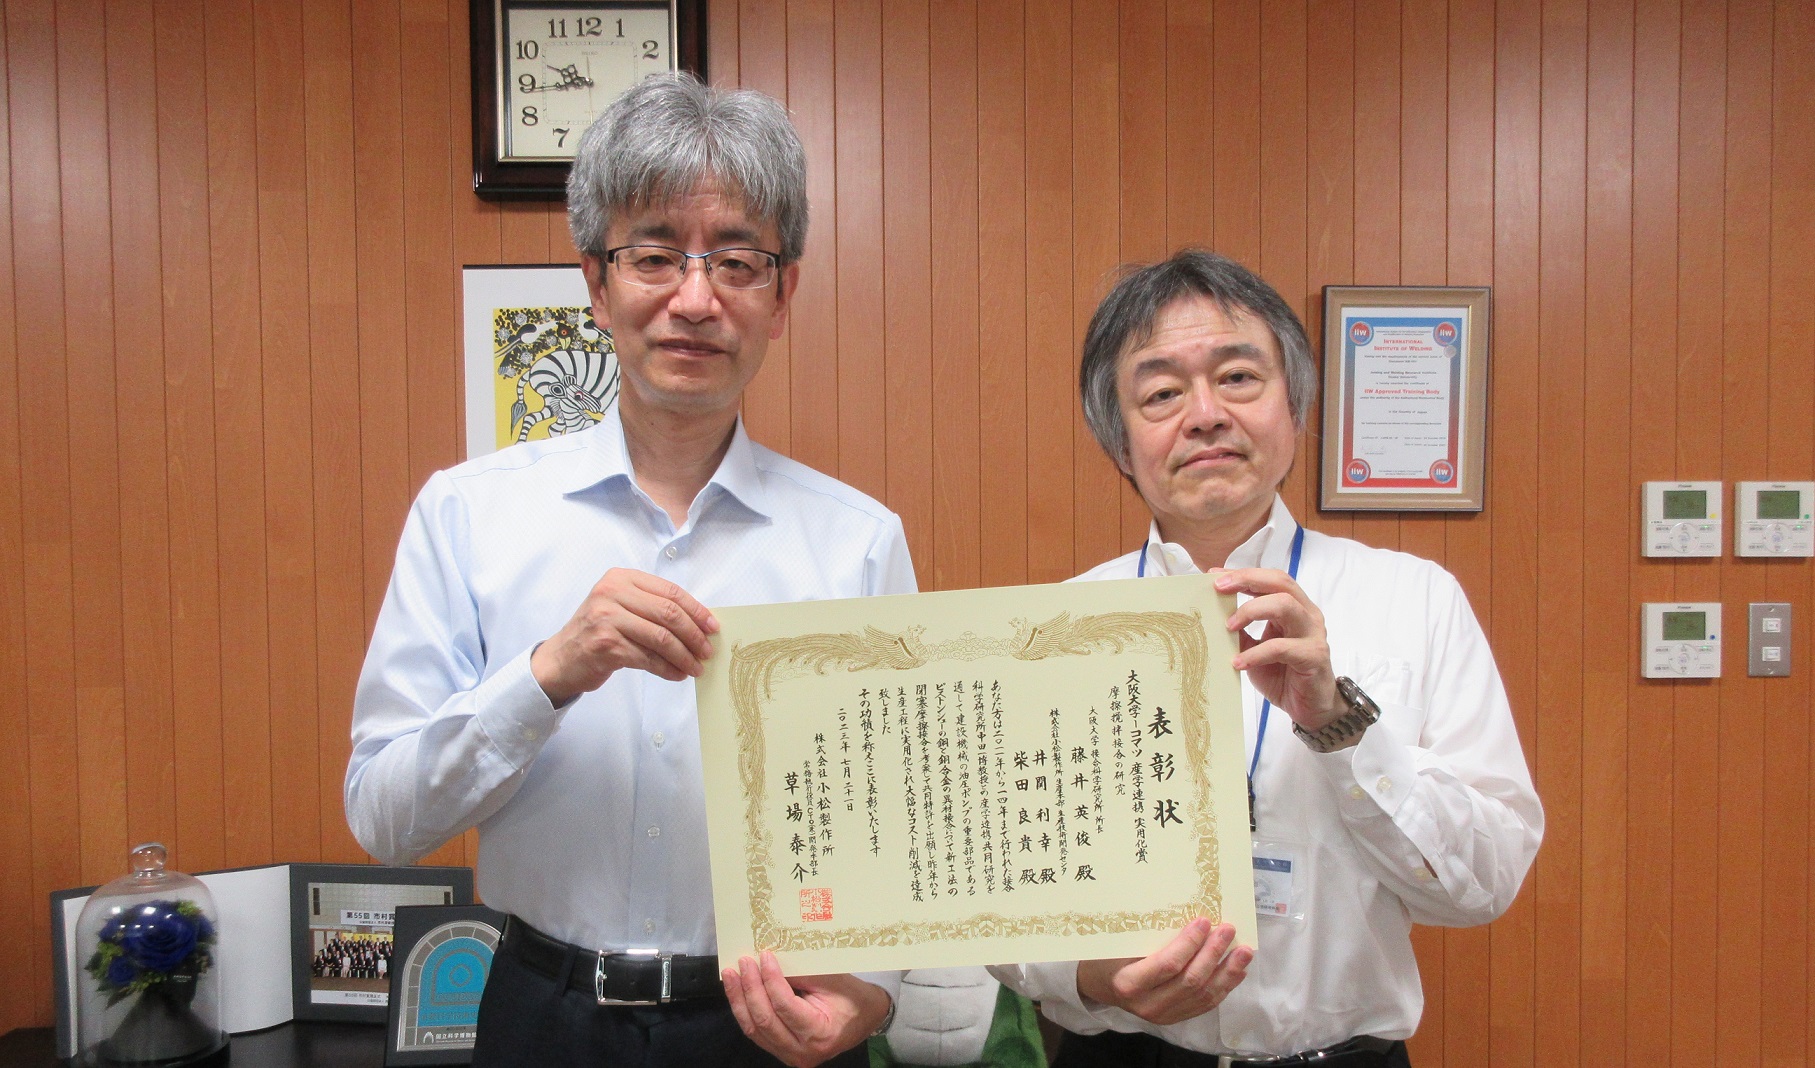 表彰状
大阪大学ーコマツ 産学連携 実用化賞
摩擦撹拌接合の研究
大阪大学 接合科学研究所 所長
藤井英俊 殿
株式会社小松製作所 生産本部 生産技術開発センタ
井関利幸 殿
柴田良貴 殿
あなた方は二〇一一年から一四年まで行われた接合
科学研究所中田一博教授との産学連携共同研究を
通して建設機械の油圧ポンプの重要部品である
ピストンシューの鋼と銅合金の異材接合について新工法の
閉塞摩擦接合を考案して共同特許を出願し昨年から
生産工程に実用化され大幅なコスト削減を達成
致しました
その功績を称えここに表彰いたします
二〇二三年 七月 二十一日
株式会社小松製作所
常務執行役員CTO(兼)開発本部長
草場泰介
11 12 1
10 2
9
8
7
iiw iiw
INTERNATIONAL
INSTITUTE OF WELDING
Joining and Welding Research Institute
Osaka University
IIW Approved Training Body
iiw iiw
第55回 市村賞
国立科学博物館